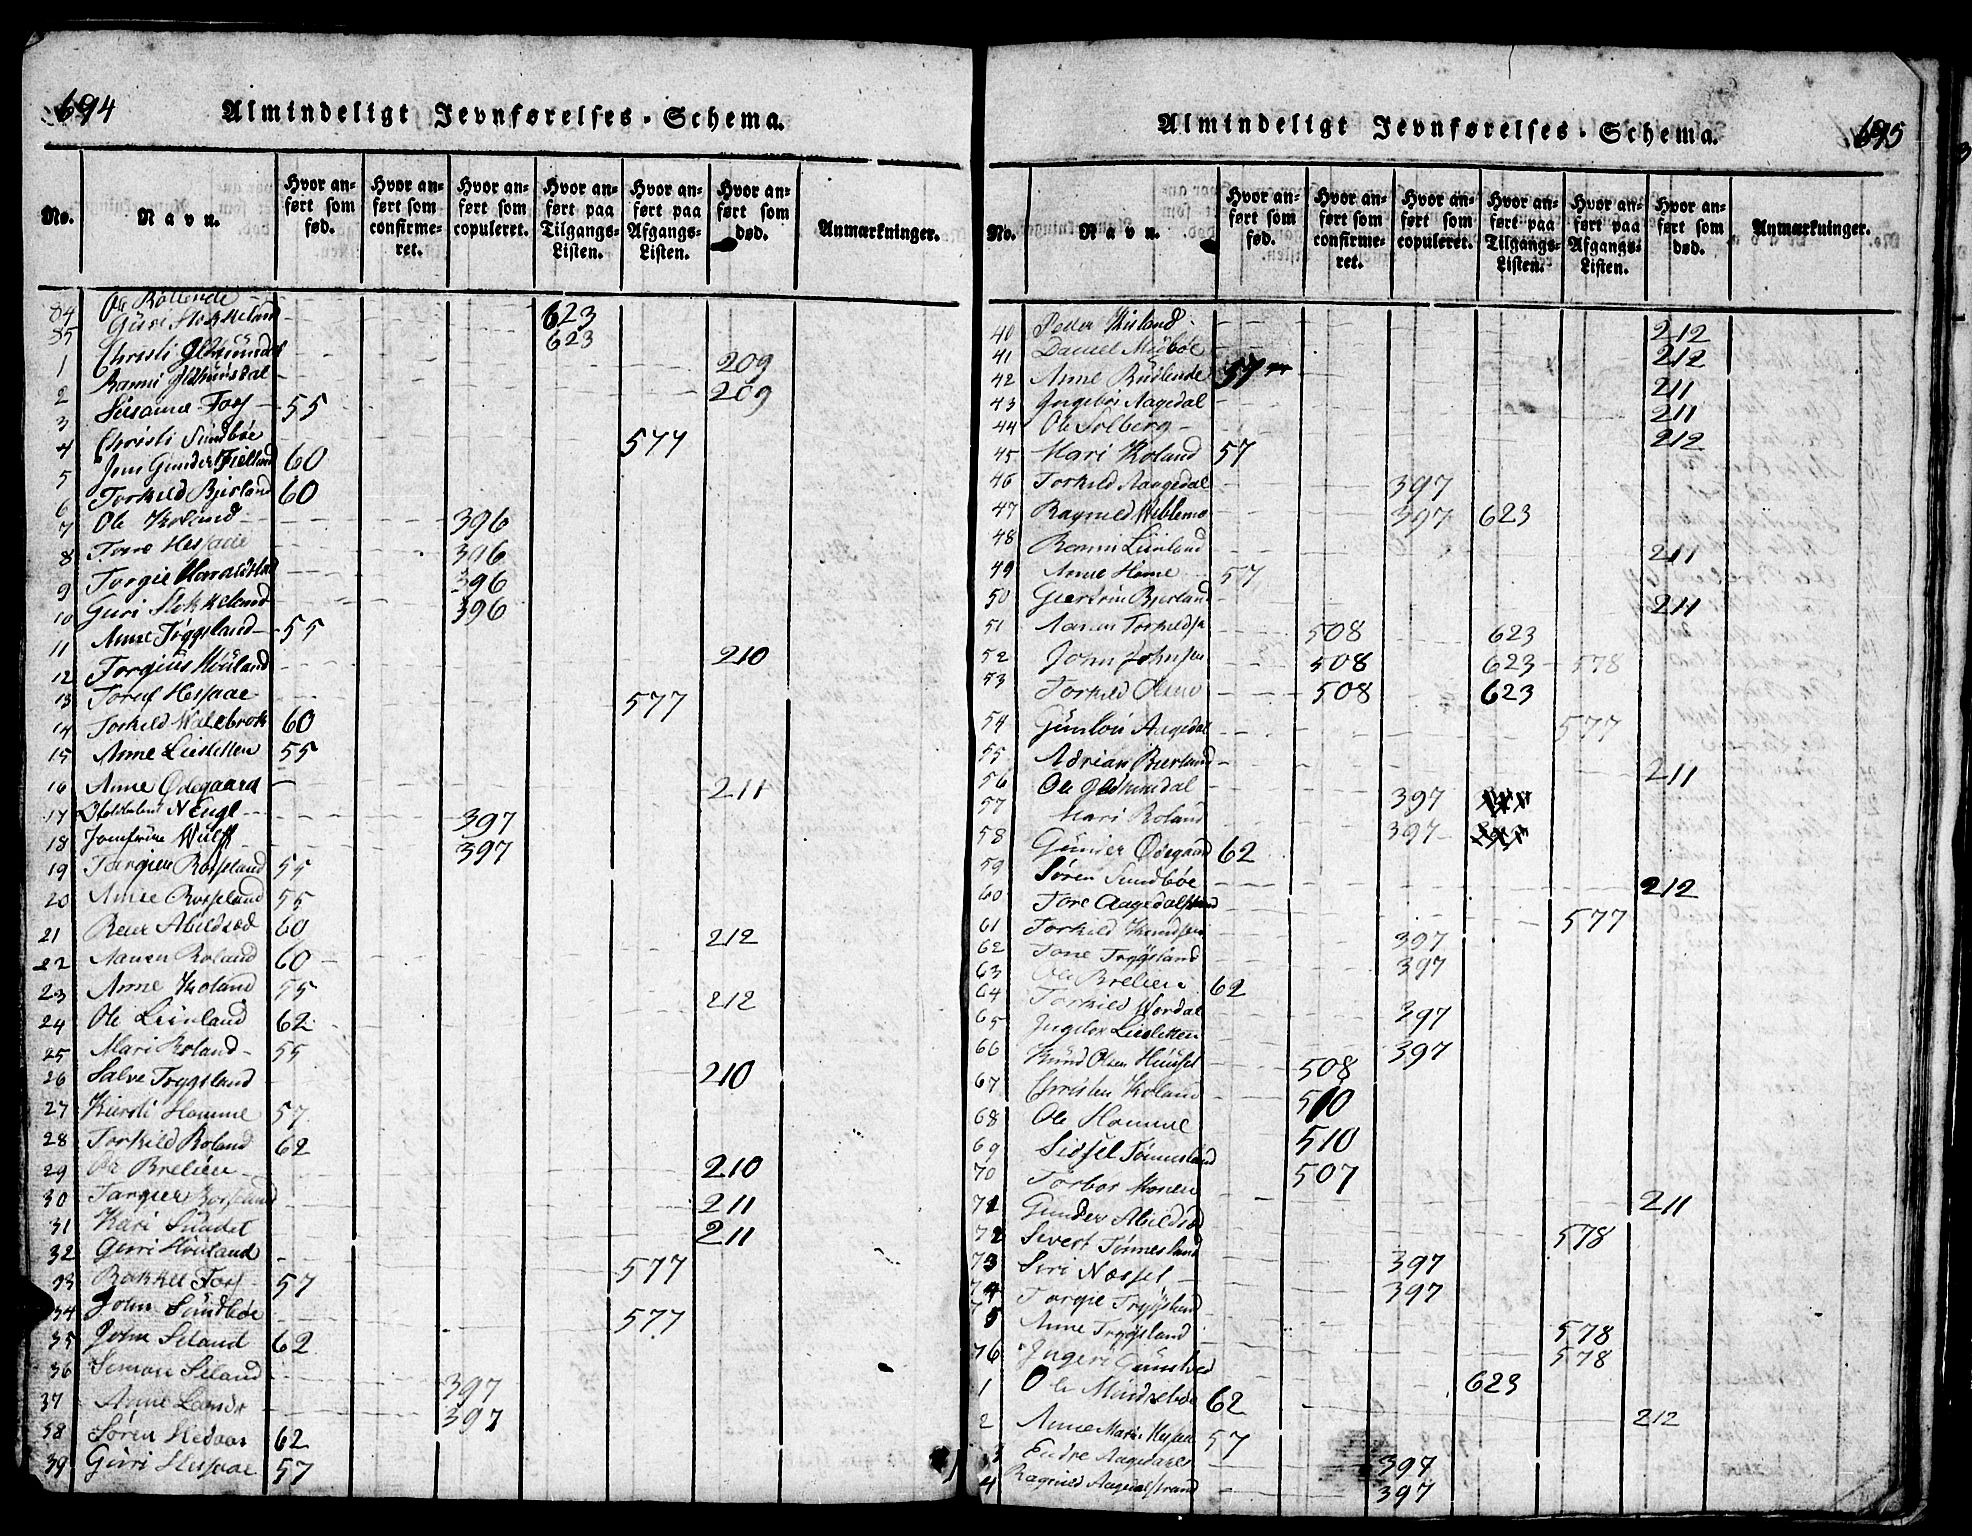 694
Almindeligt Jevnførelses-Schema.
No. | Navn. | Hvor anført som fød. | Hvor anført som confirmeret. | Hvor anført som copuleret. | Hvor anført paa Tilgangs-Listen. | Hvor anført paa Afgangs-Listen. | Hvor anført som død. | Anmærkninger.
84 Ole 623
85 Guri Stokkeland 623
1 Christi 209
2 209
3 Susanne Foss 55
4 Christi Sundbøe 577
5 Jens Gunder Fielland 60
6 Torkild Bjerland 60
7 Ole Roland 396
8 Tone Hessaae 396
9 Torgie Haraldstad 396
10 Guri Stokkeland 396
11 Anne Tryggsland 55
12 Torgius Houland 210
13 Hessaae 577
14 Torkild Wallebrok 60
15 Anne Liesletten 55
16 Anne Ødegaard 211
17 N Engl 397
18 Jomfrue Wulff 397
19 Targier Rosseland 55
20 Anne Rosseland 55
21 Reier Abildsød 60 212
22 Aanen Roland 60
23 Anne Roland 55 212
24 Ole Liinland 62
25 Mari Roland 55
26 Salve Tryggsland 210
27 Kiersti Homme 57
28 Torkild Roland 62
29 Ole Brelien 210
30 Targier Rosseland 211
31 Kari Sundet 211
32 Guri Houland 577
33 Rakkel Foss 57
34 John Sundbøe 577
35 John Seland 62
36 Simon Seland 397
37 Anne 397
38 Søren Hedaas 62
39 Guri Hessaae 57
695
Almindeligt Jevnførelses-Schema.
No. | Navn. | Hvor anført som fød. | Hvor anført som confirmeret. | Hvor anført som copuleret. | Hvor anført paa Tilgangs-Listen. | Hvor anført paa Afgangs-Listen. | Hvor anført som død. | Anmærkninger.
40 Peder 212
41 Daniel Midbøe 212
42 Anne 57 211
43 Ingebor Aagedal 211
44 Ole Solberg 212
45 Mari Roland 57
46 Torkild Aagedal 397
47 Ragnild Wiblemo 397 623
48 Liinland 211
49 Anne Home 57
50 Giertrue Bjerland 211
51 Aanen Torkildsen 508 623
52 John Johnsen 508 623 578
53 Torkild Olsen 508 623
54 Gunlou Aagedal 577
55 Adrian Bierland 211
56 Ole 397
57 Mari Roland 397
58 Gunder Ødegaard 62
59 Søren Sundbøe 212
60 Tore Aagedalstrand 577
61 Torkild Knudsen 397
62 Tone Tryggsland 397
63 Ole Brelien 62
64 Torkild 397
65 Ingebor Liesletten 397
66 Knud Olsen 508
67 Christen Roland 510
68 Ole Homme 510
69 Sidsel Tønnesland 507
70 Torbor 211
71 Gunder Abildsød 578
72 Sivert Tønnesland 397
73 Siri 397
74 Torgie Tryggsland
75 Anne Tryggsland 578
76 Ingeri 578
1 Ole 62 623
2 Anne Mari Hessaae 57 212
3 Endre 397
4 Ragnild Aagedalstrand 397